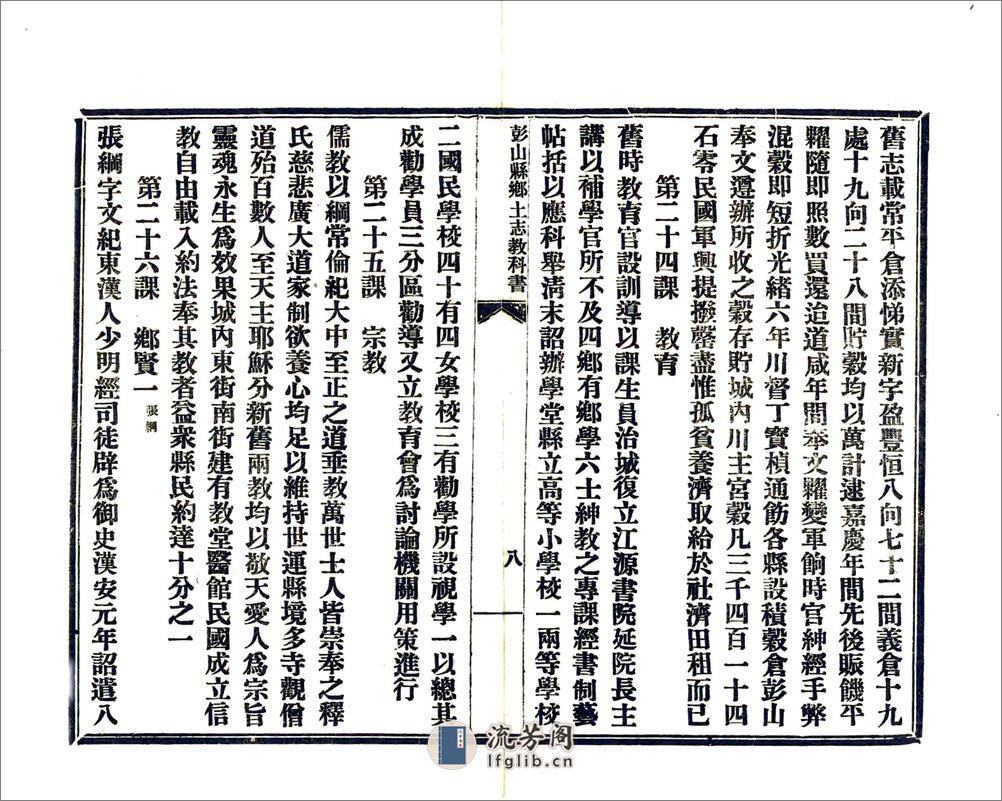 舊志載常平倉添悌實新字盈豐恒八向七十二間義倉十九
處十九向二十八間貯穀均以萬計逮嘉慶年間先後賑饑平
糶隨即照數買還迨道咸年間奉文糶變軍餉時官紳經手弊
混穀即短折光緒六年川督丁寶楨通飭各縣設積穀倉彭山
奉文遵辦所收之穀存貯城內川主宮穀凡三千四百一十四
石零民國軍興提撥罄盡惟孤貧養濟取給於社濟田租而已
第二十四課 教育
舊時教育官設訓導以課生員治城復立江源書院延院長主
講以補學官所不及四鄉有鄉學六士紳教之專課經書制藝
帖括以應科舉清末詔辦學堂縣立高等小學校一兩等學校
彭山縣鄉土志教科書 八
二國民學校四十有四女學校三有勸學所設視學一以總其
成勸學員三分區勸導又立教育會為討論機關用策進行
第二十五課 宗教
儒教以綱常倫紀大中至正之道垂教萬世士人皆崇奉之釋
氏慈悲廣大道家制欲養心均足以維持世運縣境多寺觀僧
道殆百數人至天主耶穌分新舊兩教均以敬天愛人為宗旨
靈魂永生為效果城內東街南街建有教堂醫館民國成立信
教自由載入約法奉其教者益衆縣民約達十分之一
第二十六課 鄉賢一 張綱
張綱字文紀東漢人少明經司徒辟為御史漢安元年詔遣八
流芳閣
lfglib.cn